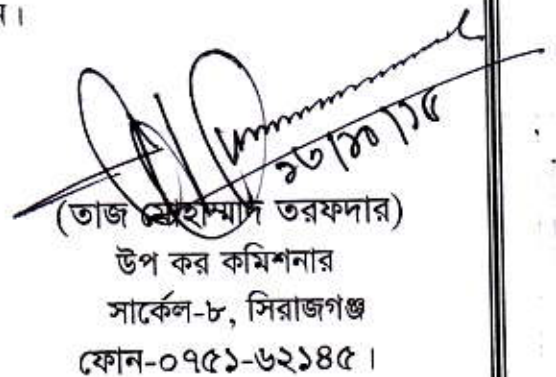 ১৩/১০/১৫
(তাজ মোহাম্মাদ তরফদার)
উপ কর কমিশনার
সার্কেল-৮, সিরাজগঞ্জ
ফোন-০৭৫১-৬২১৪৫।